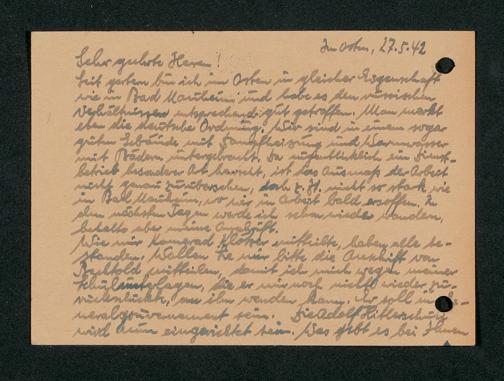 Im Osten, 27.5.42
Sehr geehrte Herren!
Seit gestern bin ich im Osten in gleicher Eigenschaft
wie in Bad Nauheim und habe es den russischen
Verhältnissen entsprechend gut getroffen. Man merkt
eben die deutsche Ordnung. Wir sind in einem sogar
guten Gebäude mit Dampfheizung und Warmwasser
mit Bädern untergebracht. Da augenblicklich ein Dienst-
betrieb besonderer Art herrscht, ist das Ausmaß der Arbeit
nicht genau zu übersehen, doch z. Zt. nicht so stark wie
in Bad Nauheim, wo wir in Arbeit bald ersoffen. In
den nächsten Tagen werde ich schon wieder wandern,
behalte aber meine Anschrift.
Wie mir Kamerad mitteilte, haben alle be-
standen. Wollen Sie mir bitte die Anschrift von
Bechtold mitteilen, damit ich mich wegen meiner
Schulunterlagen, die er mir noch nicht wieder zu-
rückschickte, an ihn wenden kann. Er soll im Ge-
neralgouvernement sein. Die Adolf Hitlerschule
wird nun eingerichtet sein. Was gibt es bei Ihnen